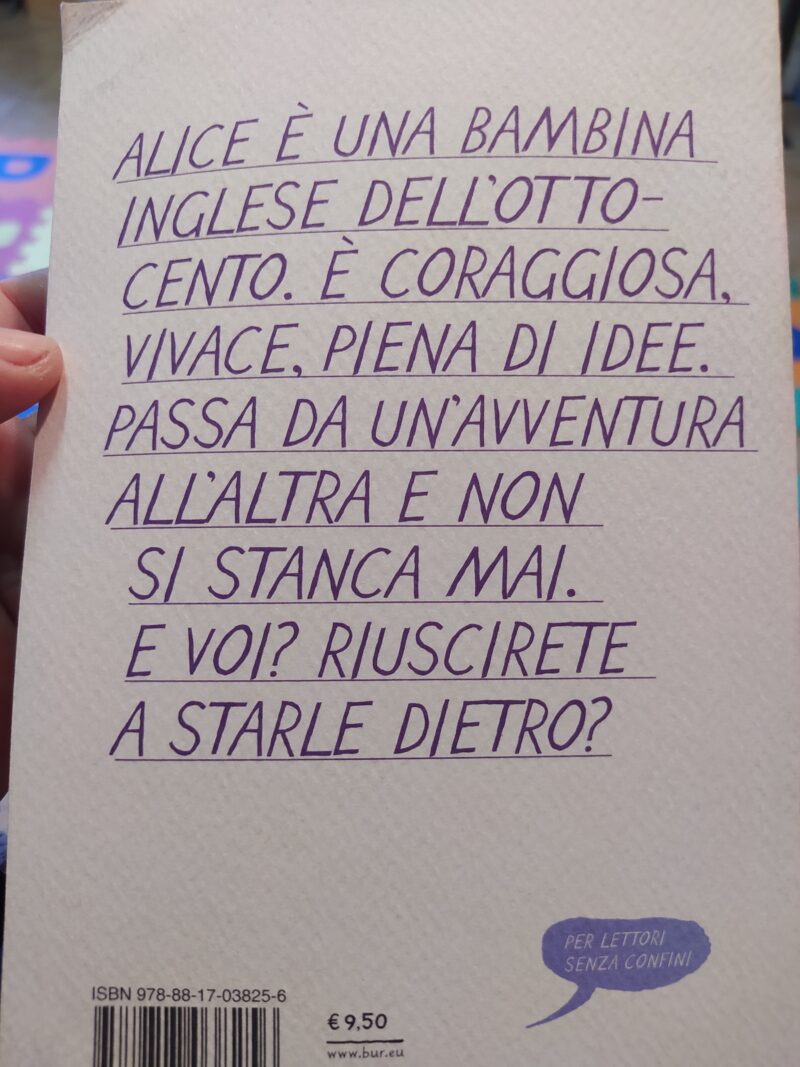 ALICE È UNA BAMBINA
INGLESE DELL'OTTO-
CENTO. È CORAGGIOSA,
VIVACE, PIENA DI IDEE.
PASSA DA UN'AVVENTURA
ALL'ALTRA E NON
SI STANCA MAI.
E VOI? RIUSCIRETE
A STARLE DIETRO?
PER LETTORI
SENZA CONFINI
ISBN 978-88-17-03825-6
€ 9,50
www.bur.eu